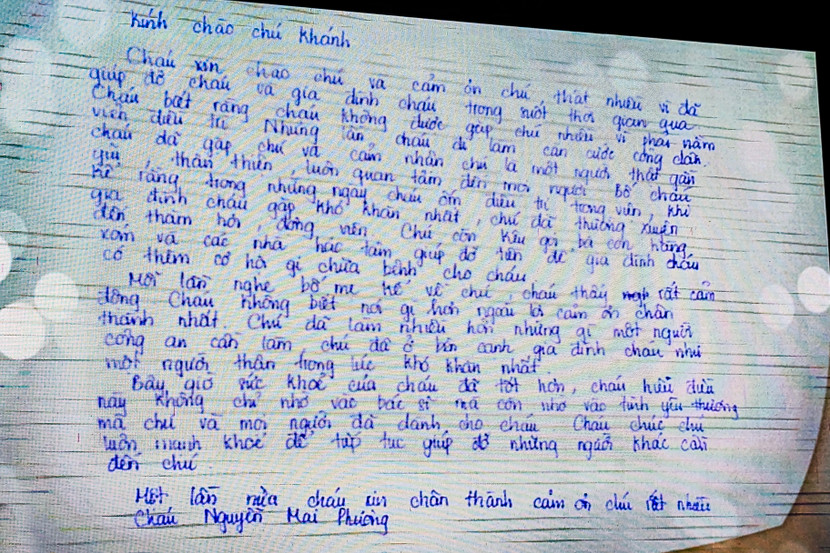 Kính chào chú Khánh
Cháu xin chào chú và cảm ơn chú thật nhiều vì đã
giúp đỡ cháu và gia đình cháu trong suốt thời gian qua.
Cháu biết rằng cháu không được gặp chú nhiều vì phải nằm
viện điều trị. Nhưng lần cháu đi làm căn cước công dân.
cháu đã gặp chú và cảm nhận chú là một người thật gần
gũi, thân thiện, luôn quan tâm đến mọi người. Bố cháu
kể rằng trong những ngày cháu ốm điều trị trong viện, khi
gia đình cháu gặp khó khăn nhất, chú đã thường xuyên
đến thăm hỏi, động viên. Chú còn kêu gọi bà con hàng
xóm và các nhà hảo tâm giúp đỡ tiền để gia đình cháu
có thêm cơ hội chữa bệnh cho cháu.
Mỗi lần nghe bố mẹ kể về chú, cháu thấy rất cảm
động. Cháu không biết nói gì hơn ngoài lời cảm ơn chân
thành nhất. Chú đã làm nhiều hơn những gì một người
công an cần làm chú đã ở bên cạnh gia đình cháu như
một người thân trong lúc khó khăn nhất.
Bây giờ sức khoẻ của cháu đã tốt hơn, cháu hiểu điều
này không chỉ nhờ vào bác sĩ mà còn nhờ vào tình yêu thương
mà chú và mọi người đã dành cho cháu. Cháu chúc chú
luôn mạnh khoẻ để tiếp tục giúp đỡ những người khác cần
đến chú.
Một lần nữa cháu xin chân thành cảm ơn chú rất nhiều
Cháu Nguyễn Mai Phương